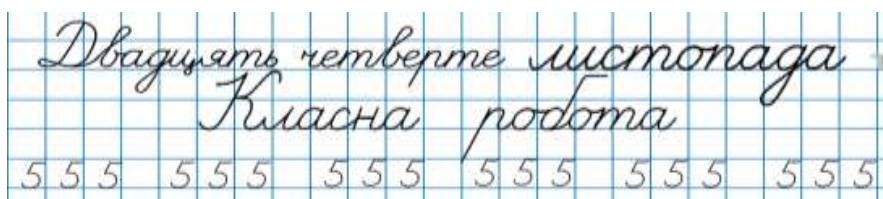 Двадцять четверте листопада
Класна робота
5 5 5 5 5 5 5 5 5 5 5 5 5 5 5 5 5 5